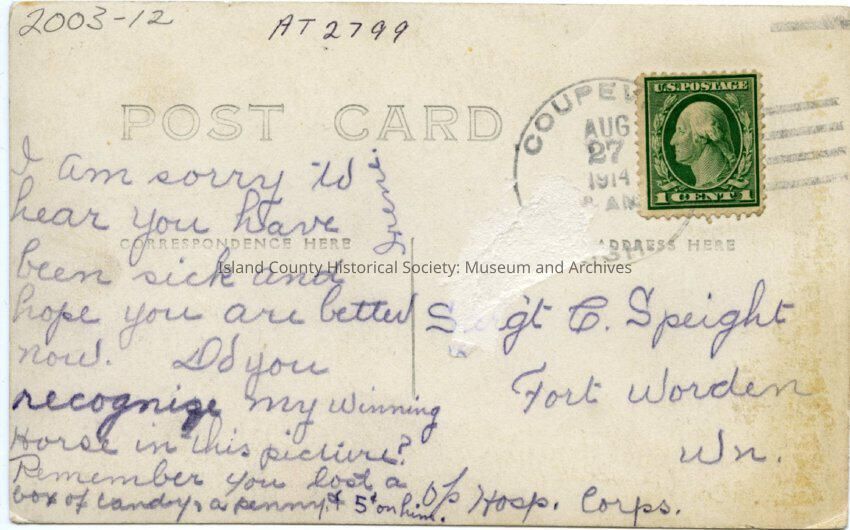 2003-12
AT 2799
POST CARD
COUPEV
AUG
27
1914
AM
SH
U.S. POSTAGE
1 CENT 1
CORRESPONDENCE HERE
ADDRESS HERE
Island County Historical Society: Museum and Archives
I am sorry to
hear you have
been sick and
hope you are better
now. Do you
recognize my winning
Horse in this picture?
Remember you lost a
box of candy, a penny & 5¢ on him.
Sergt C. Speight
Fort Worden
Wn.
o/o Hosp. Corps.